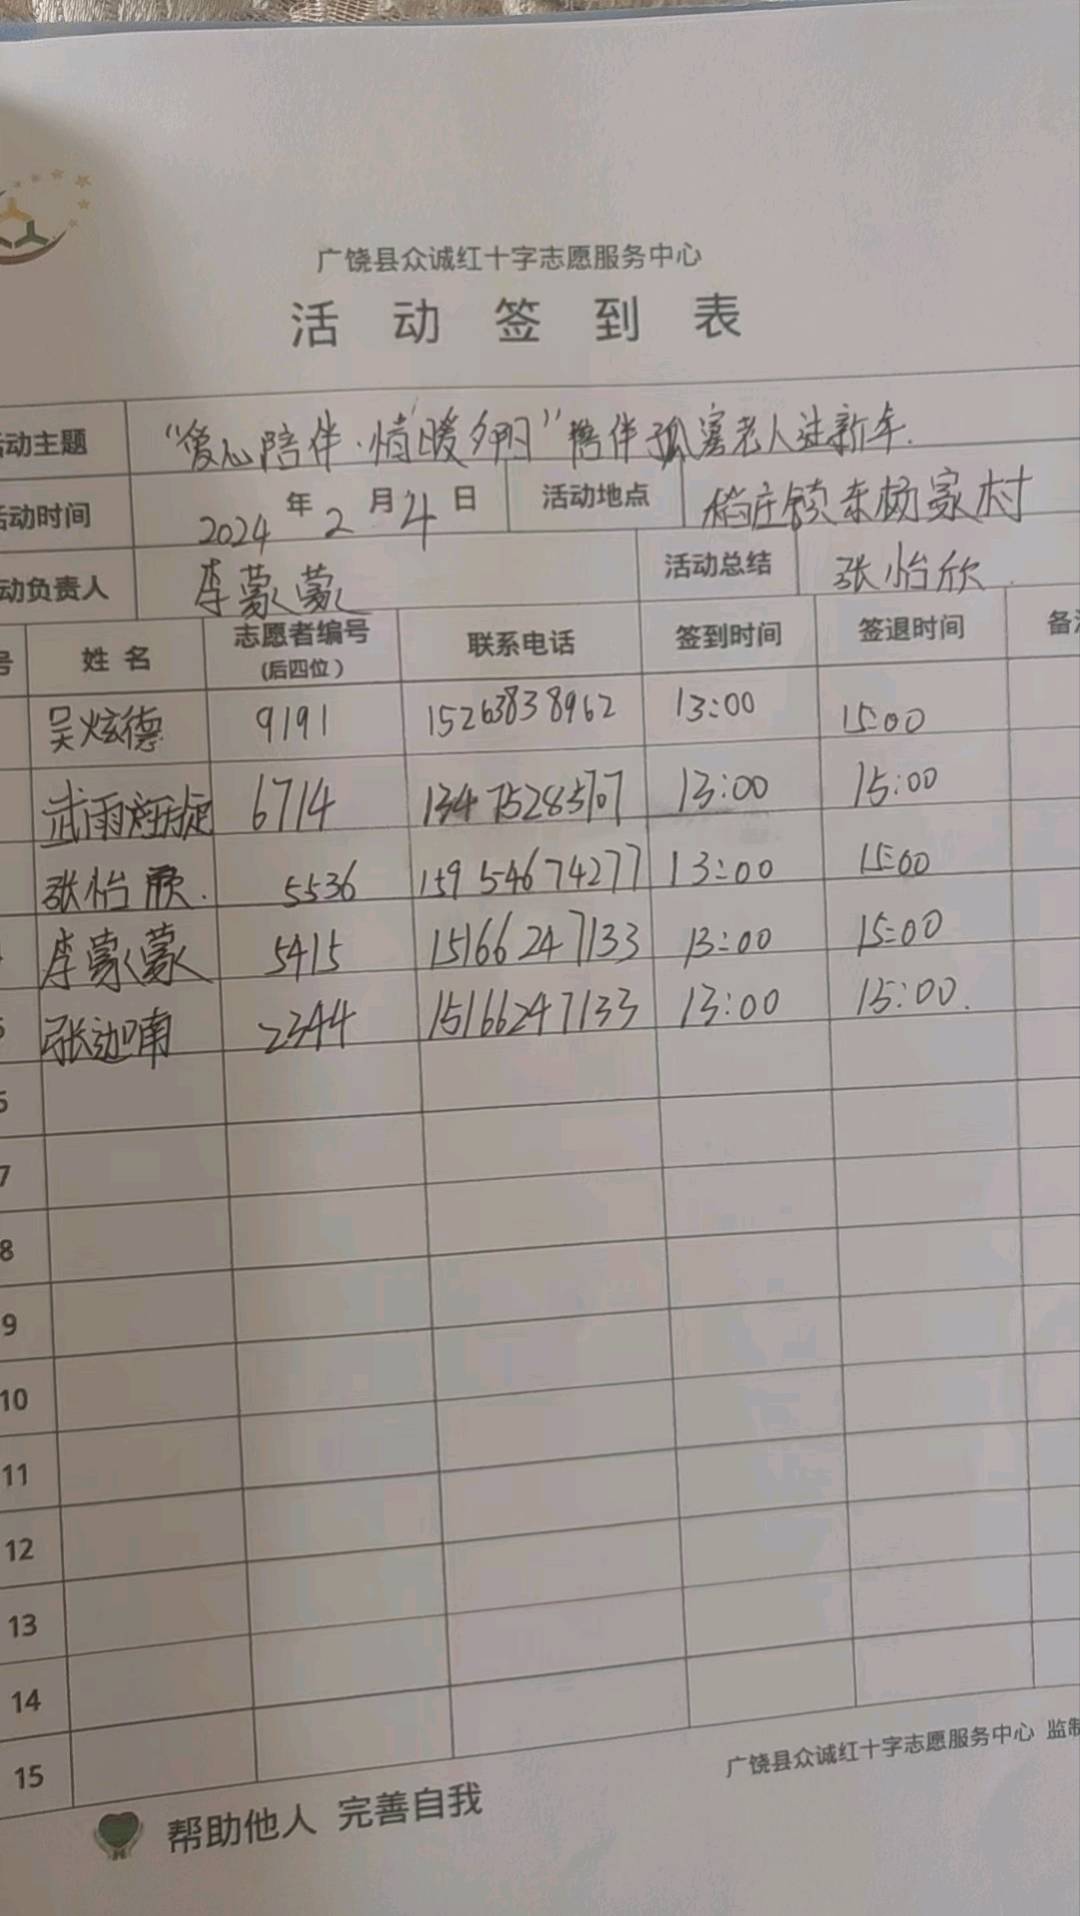 广饶县众诚红十字志愿服务中心
活动签到表
活动主题 “爱心陪伴·情暖夕阳”陪伴孤寡老人迎新年.
活动时间 2024年2月4日 活动地点 稻庄镇东杨家村
动负责人 李蒙蒙 活动总结 张怡欣.
号 姓名 志愿者编号(后四位) 联系电话 签到时间 签退时间 备注
吴炫德 9191 15263838962 13:00 15:00
武雨 6714 13:00 15:00
张怡欣. 5536 15954674277 13:00 15:00
李蒙蒙 5415 15166247133 13:00 15:00
5 张迦喃 2344 15166247133 13:00 15:00.
6
7
8
9
10
11
12
13
14
15
广饶县众诚红十字志愿服务中心 监制
帮助他人 完善自我